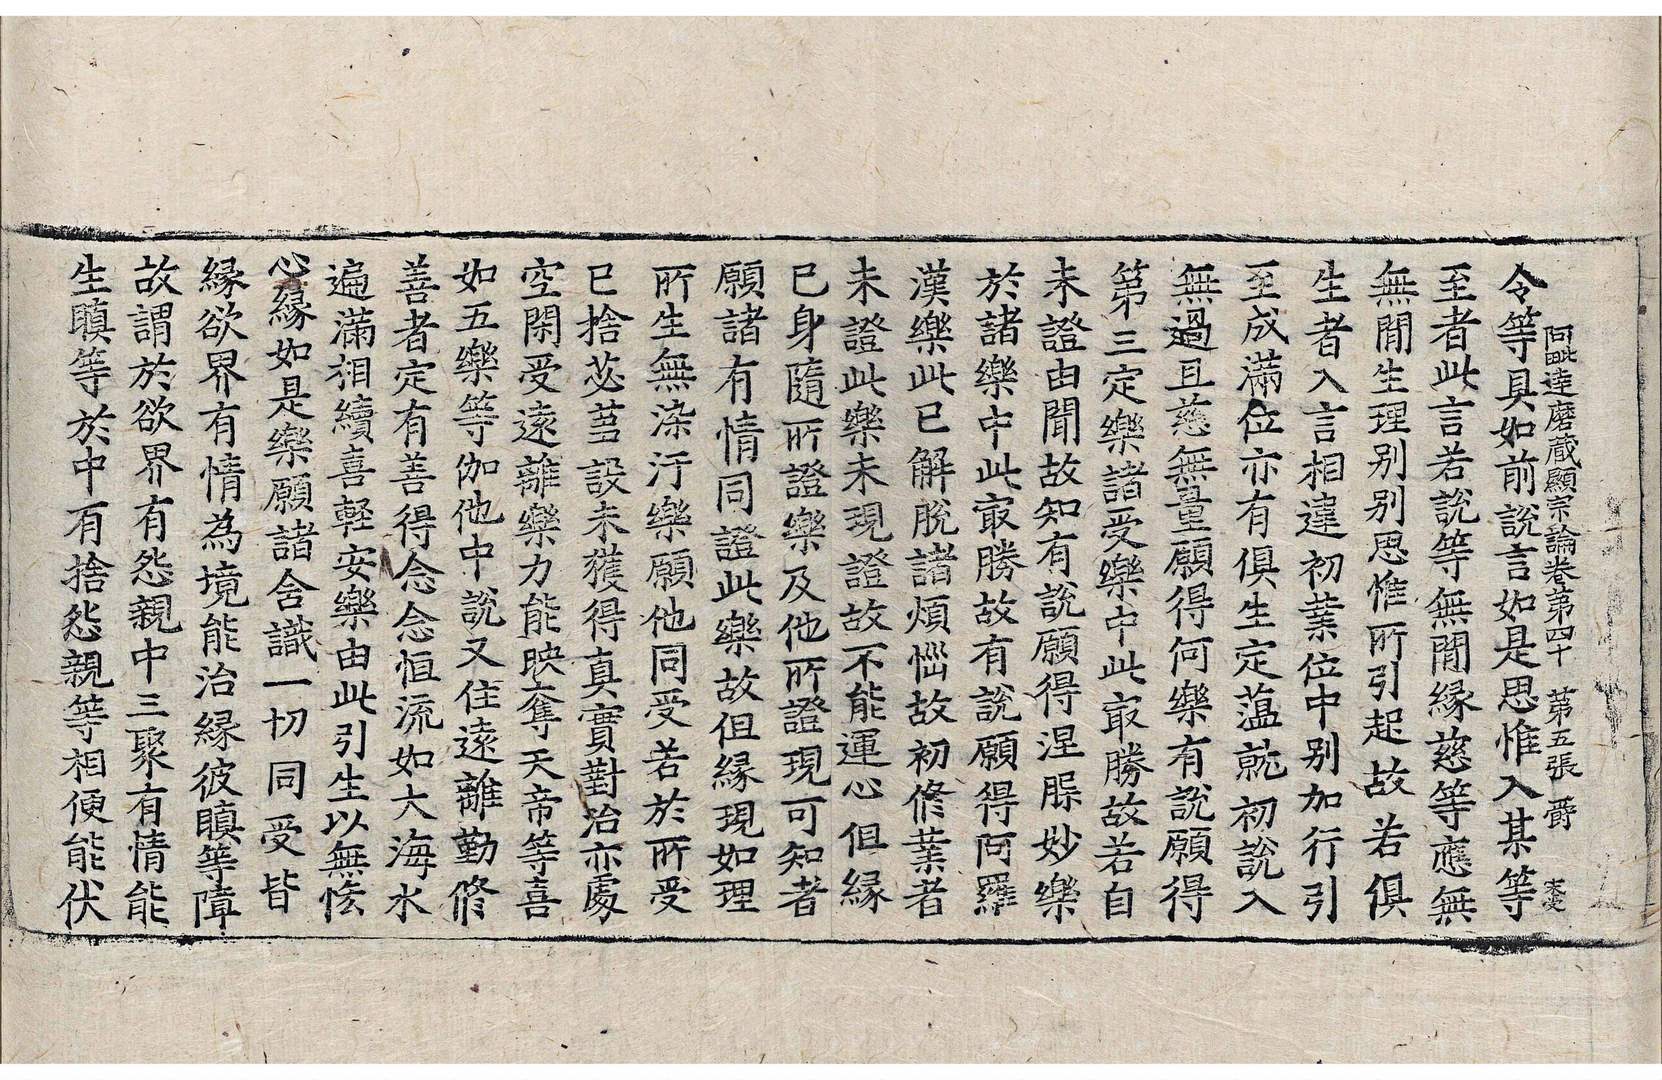 阿毗達磨蔵顯宗論卷第四十 第五張 爵
令等具如前說言如是思惟入某等
至者此言若說等無閒緣慈等應無
無閒生理别别思惟所引起故若俱
生者入言相違初業位中别加行引
至成滿位亦有俱生定蕰就初說入
無過且慈無量願得何樂有說願得
第三定樂諸受樂中此㝡勝故若自
未證由聞故知有說願得涅膎妙樂
於諸樂中此㝡勝故有說願得阿羅
漢樂此已解脫諸煩惱故初修業者
未證此樂未現證故不能運心但緣
已身隨所證樂及他所證現可知者
願諸有情同證此樂故但緣現如理
所生無染汙樂願他同受若於所受
已捨苾蒭設未獲得真實對治亦處
空閑受遠離樂力能映奪天帝等喜
如五樂等伽他中說又住遠離勤修
善者定有善得念念恒流如大海水
遍滿相續喜輕安樂由此引生以無恡
心緣如是樂願諸含識一切同受皆
緣欲界有情為境能治緣彼瞋等障
故謂於欲界有怨親中三聚有情能
生瞋等於中有捨怨親等相便能伏